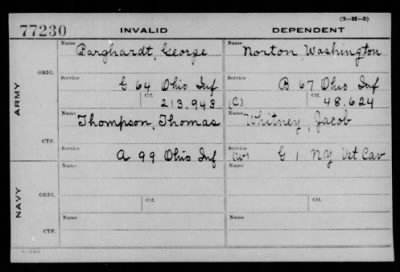 (3-M-5)
77230 INVALID DEPENDENT
Name Parghardt, George Name Norton, Washington
ARMY ORIG. Service G 64 Ohio Inf Service B 67 Ohio Inf
Ctf. 213,943 (C) Ctf. 48,624
CTF. Name Thompson, Thomas Name Whitney, Jacob
Service A 99 Ohio Inf Service (W) G 1 NY Vet Cav
NAVY ORIG. Name Name
Service Ctf. Service Ctf.
CTF. Name Name
Service Service